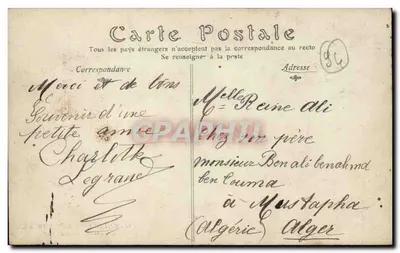 Carte Postale
Tous les pays étrangers n'acceptent pas la correspondance au recto
Se renseigner à la poste
Correspondance
Adresse
94
Merci et de bons
Souvenir d'une
petite amie
Charlotte
Legrand
Melle Reine Ali
chez son père
monsieur Ben ali ben ahmd
ben Couma
à Mustapha
(Algérie) Alger